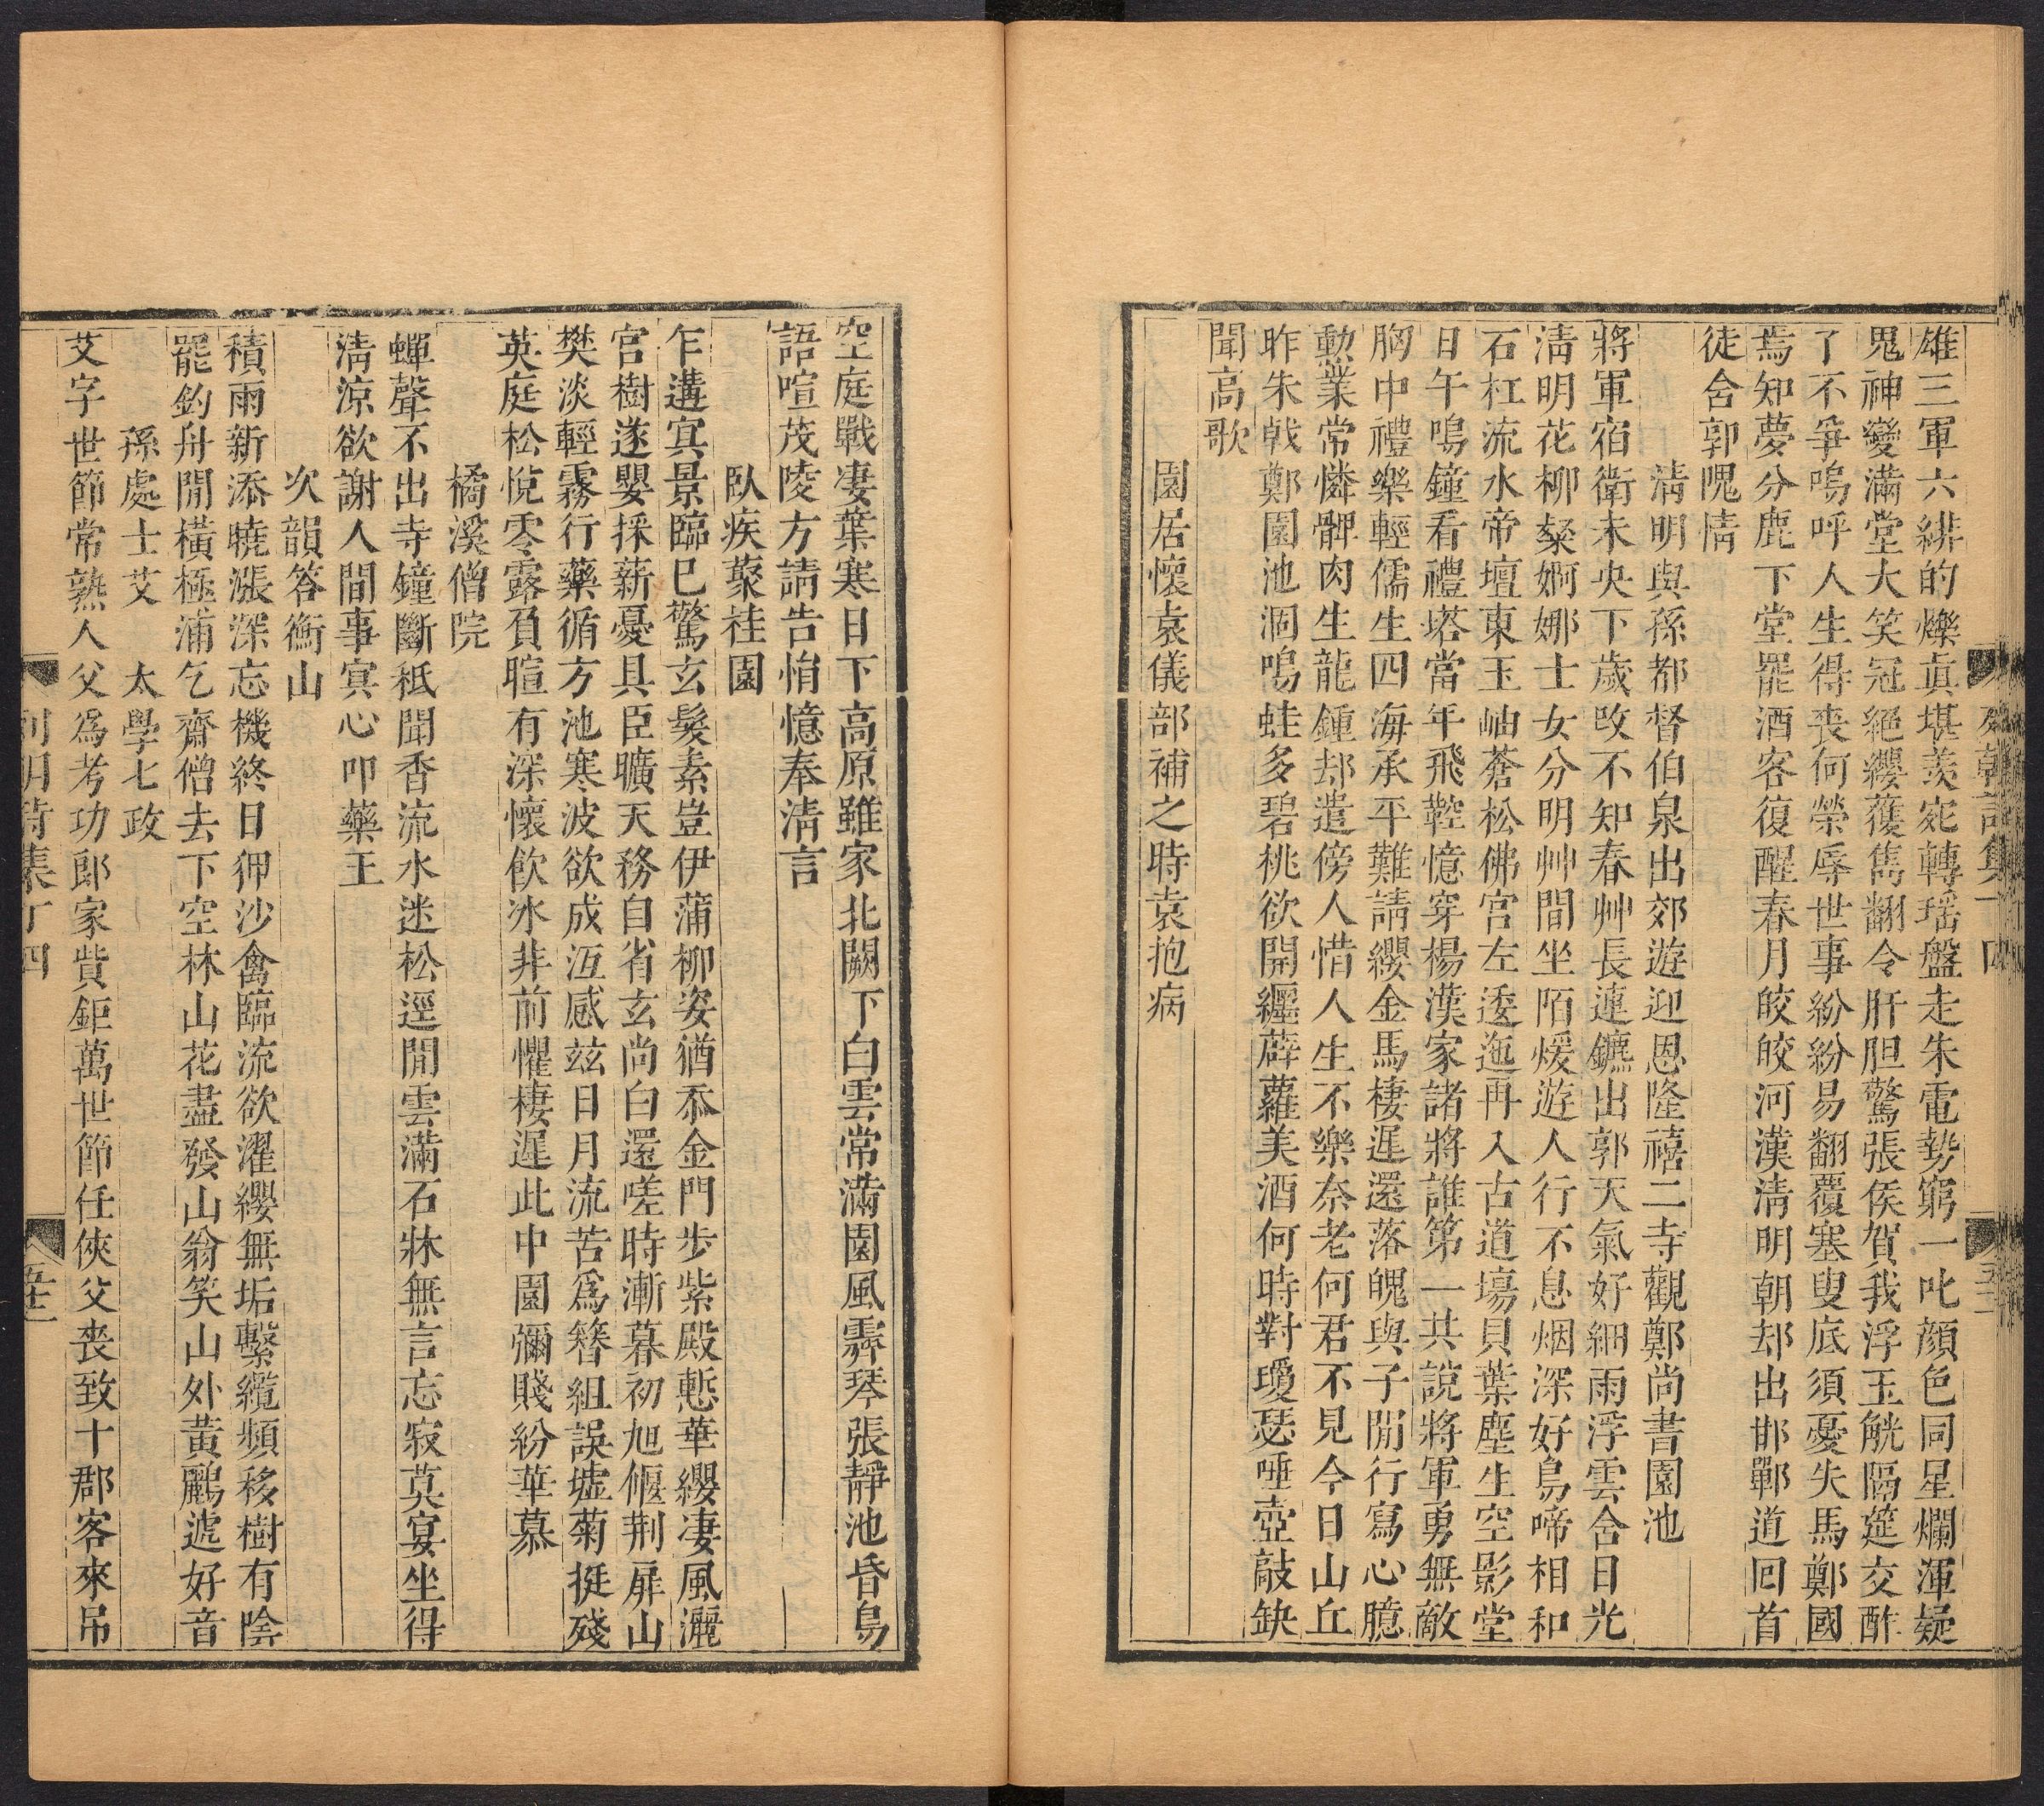 雄三軍六緋的爍眞堪羨宛轉瑶盤走朱電勢窮一叱顔色同星爛渾疑
鬼神變滿堂大笑冠絕纓蒦雋翻令肝胆驚張侯賀我浮玉觥隔筵交酢
了不爭嗚呼人生得喪何榮辱世事紛紛易翻覆塞叟底須憂失馬鄭國
焉知夢分鹿下堂罷酒客復醒春月皎皎河漢淸明朝却出邯鄲道回首
徒舍郭隗情
淸明與孫都督伯泉出郊遊迎恩隆禧二寺觀鄭尚書園池
將軍宿衛未央下歲改不知春艸長連鑣出郭天氣好細雨浮雲舍日光
淸明花柳粲婀娜士女分明艸間坐陌煖遊人行不息烟深好鳥啼相和
石杠流水帝壇東玉岫蒼松佛宮左逶迤再入古道塲貝葉塵生空影堂
日午鳴鐘看禮塔當年飛鞚憶穿楊漢家諸將誰第一共說將軍勇無敵
胸中禮樂輕儒生四海承平難請纓金馬棲遲還落魄與子閒行寫心臆
勳業常憐髀肉生龍鍾却遣傍人惜人生不樂奈老何君不見今日山丘
昨朱戟鄭園池涸鳴蛙多碧桃欲開纒薜蘿美酒何時對璦瑟唾壺敲缺
聞高歌
園居懷袁儀部補之時袁抱病
空庭戰凄葉寒日下高原雖家北闕下白雲常滿園風霽琴張靜池昏鳥
語喧茂陵方請告悁憶奉淸言
臥疾藂桂園
乍遘寘景臨已驚玄髮素豈伊蒲柳姿猶忝金門步紫殿慙華纓凄風灑
宮樹遂嬰採薪憂具臣曠天務自省玄尚白還嗟時漸暮初旭偃荆扉山
樊淡輕霧行藥循方池寒波欲成沍感兹日月流苦爲簪組誤墟菊挺殘
英庭松悅零露負暄有深懷飮冰非前懼棲遲此中園彌賤紛華慕
橘溪僧院
蟬聲不出寺鐘斷秖聞香流水迷松逕閒雲滿石牀無言忘寂莫宴坐得
淸凉欲謝人間事寘心叩藥王
次韻答衡山
積雨新添曉漲深忘機終日狎沙禽臨流欲濯纓無垢繫纜頻移樹有陰
罷釣舟閒橫極浦乞齋僧去下空林山花盡發山翁笑山外黃鸝遞好音
孫處士艾　太學七政
艾字世節常熟人父爲考功郎家貲鉅萬世節任俠父喪致十郡客來吊